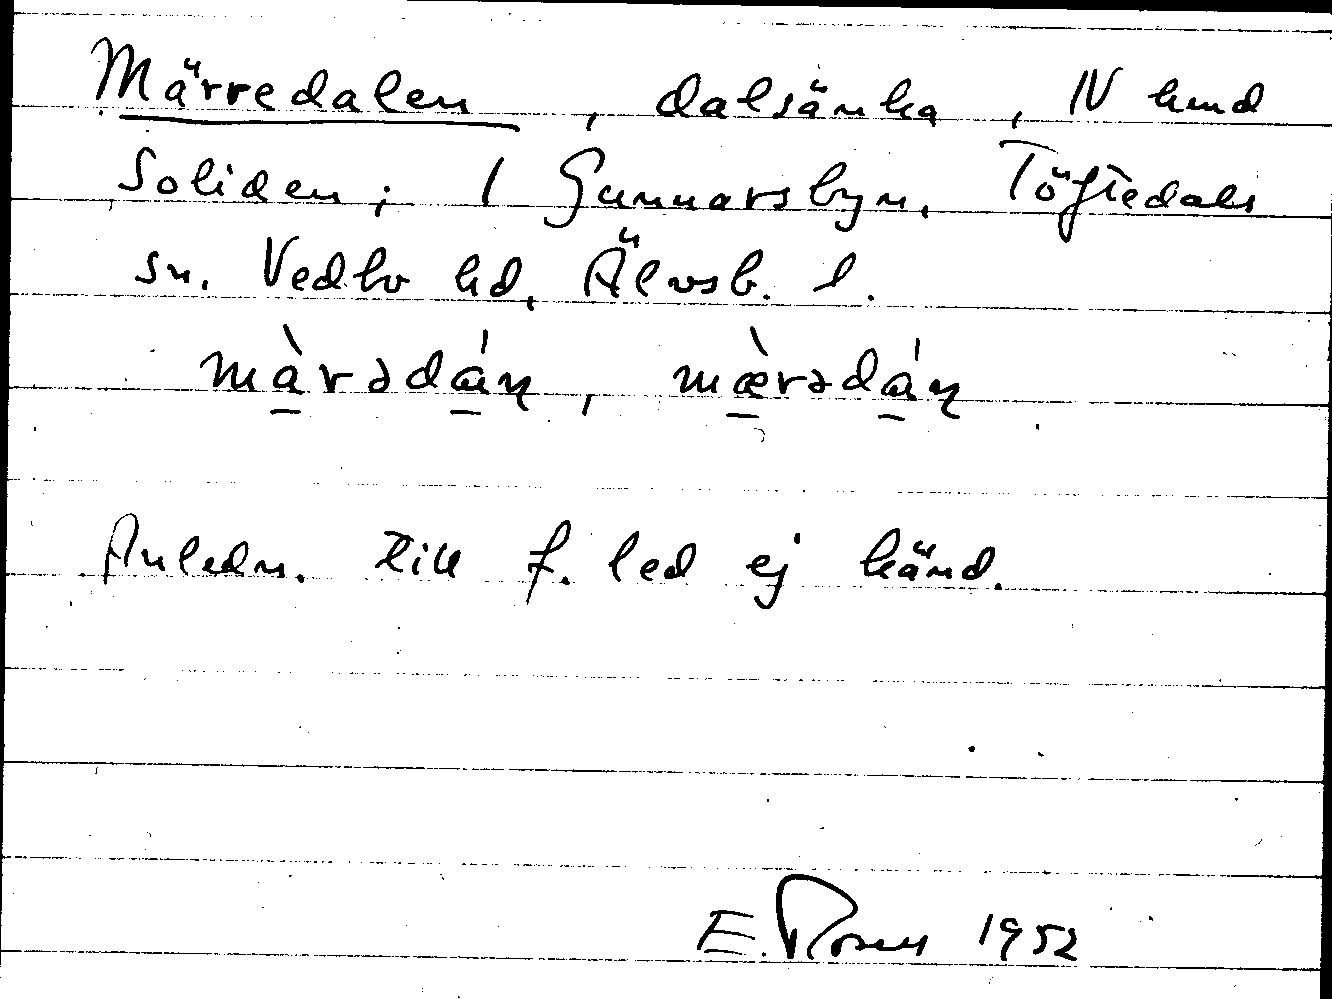 Märredalen, dalsänka, NV hmd
Soliden; 1 Gunnarsbyn, Töftedals
sn. Vedbo hd, Älvsb. l.
màrədáɳ, mæ̀rədáɳ
Anledn. till f. led ej känd.
E. 1952